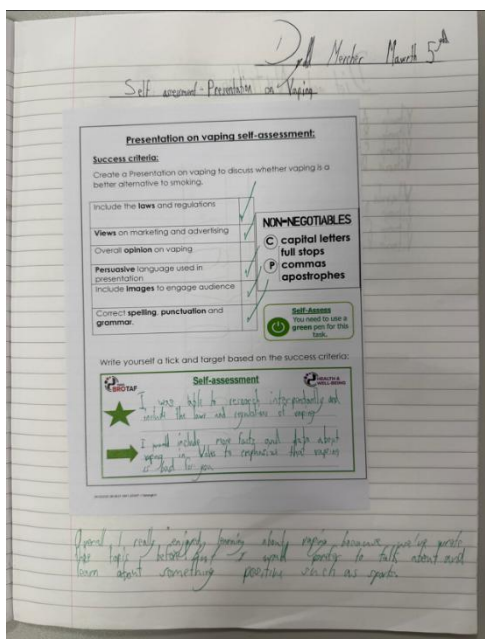 Dydd Mercher Mawrth 5ed
Self assessment - Presentation on Vaping
Presentation on vaping self-assessment:
Success criteria:
Create a Presentation on vaping to discuss whether vaping is a
better alternative to smoking.
Include the laws and regulations
Views on marketing and advertising
Overall opinion on vaping
Persuasive language used in
presentation
Include images to engage audience
Correct spelling, punctuation and
grammar.
NON-NEGOTIABLES
C capital letters
full stops
P commas
apostrophes
Self-Assess
You need to use a
green pen for this
task.
Write yourself a tick and target based on the success criteria:
BROTAF
Self-assessment
HEALTH &
WELL-BEING
I was able to research independently and
include the laws and regulations of vaping
I would include more facts and data about
vaping in Wales to emphasise that vaping
is bad for you
Overall I really enjoyed learning about vaping because we've
topic before but I would prefer to talk about and
learn about something positive such as sports.